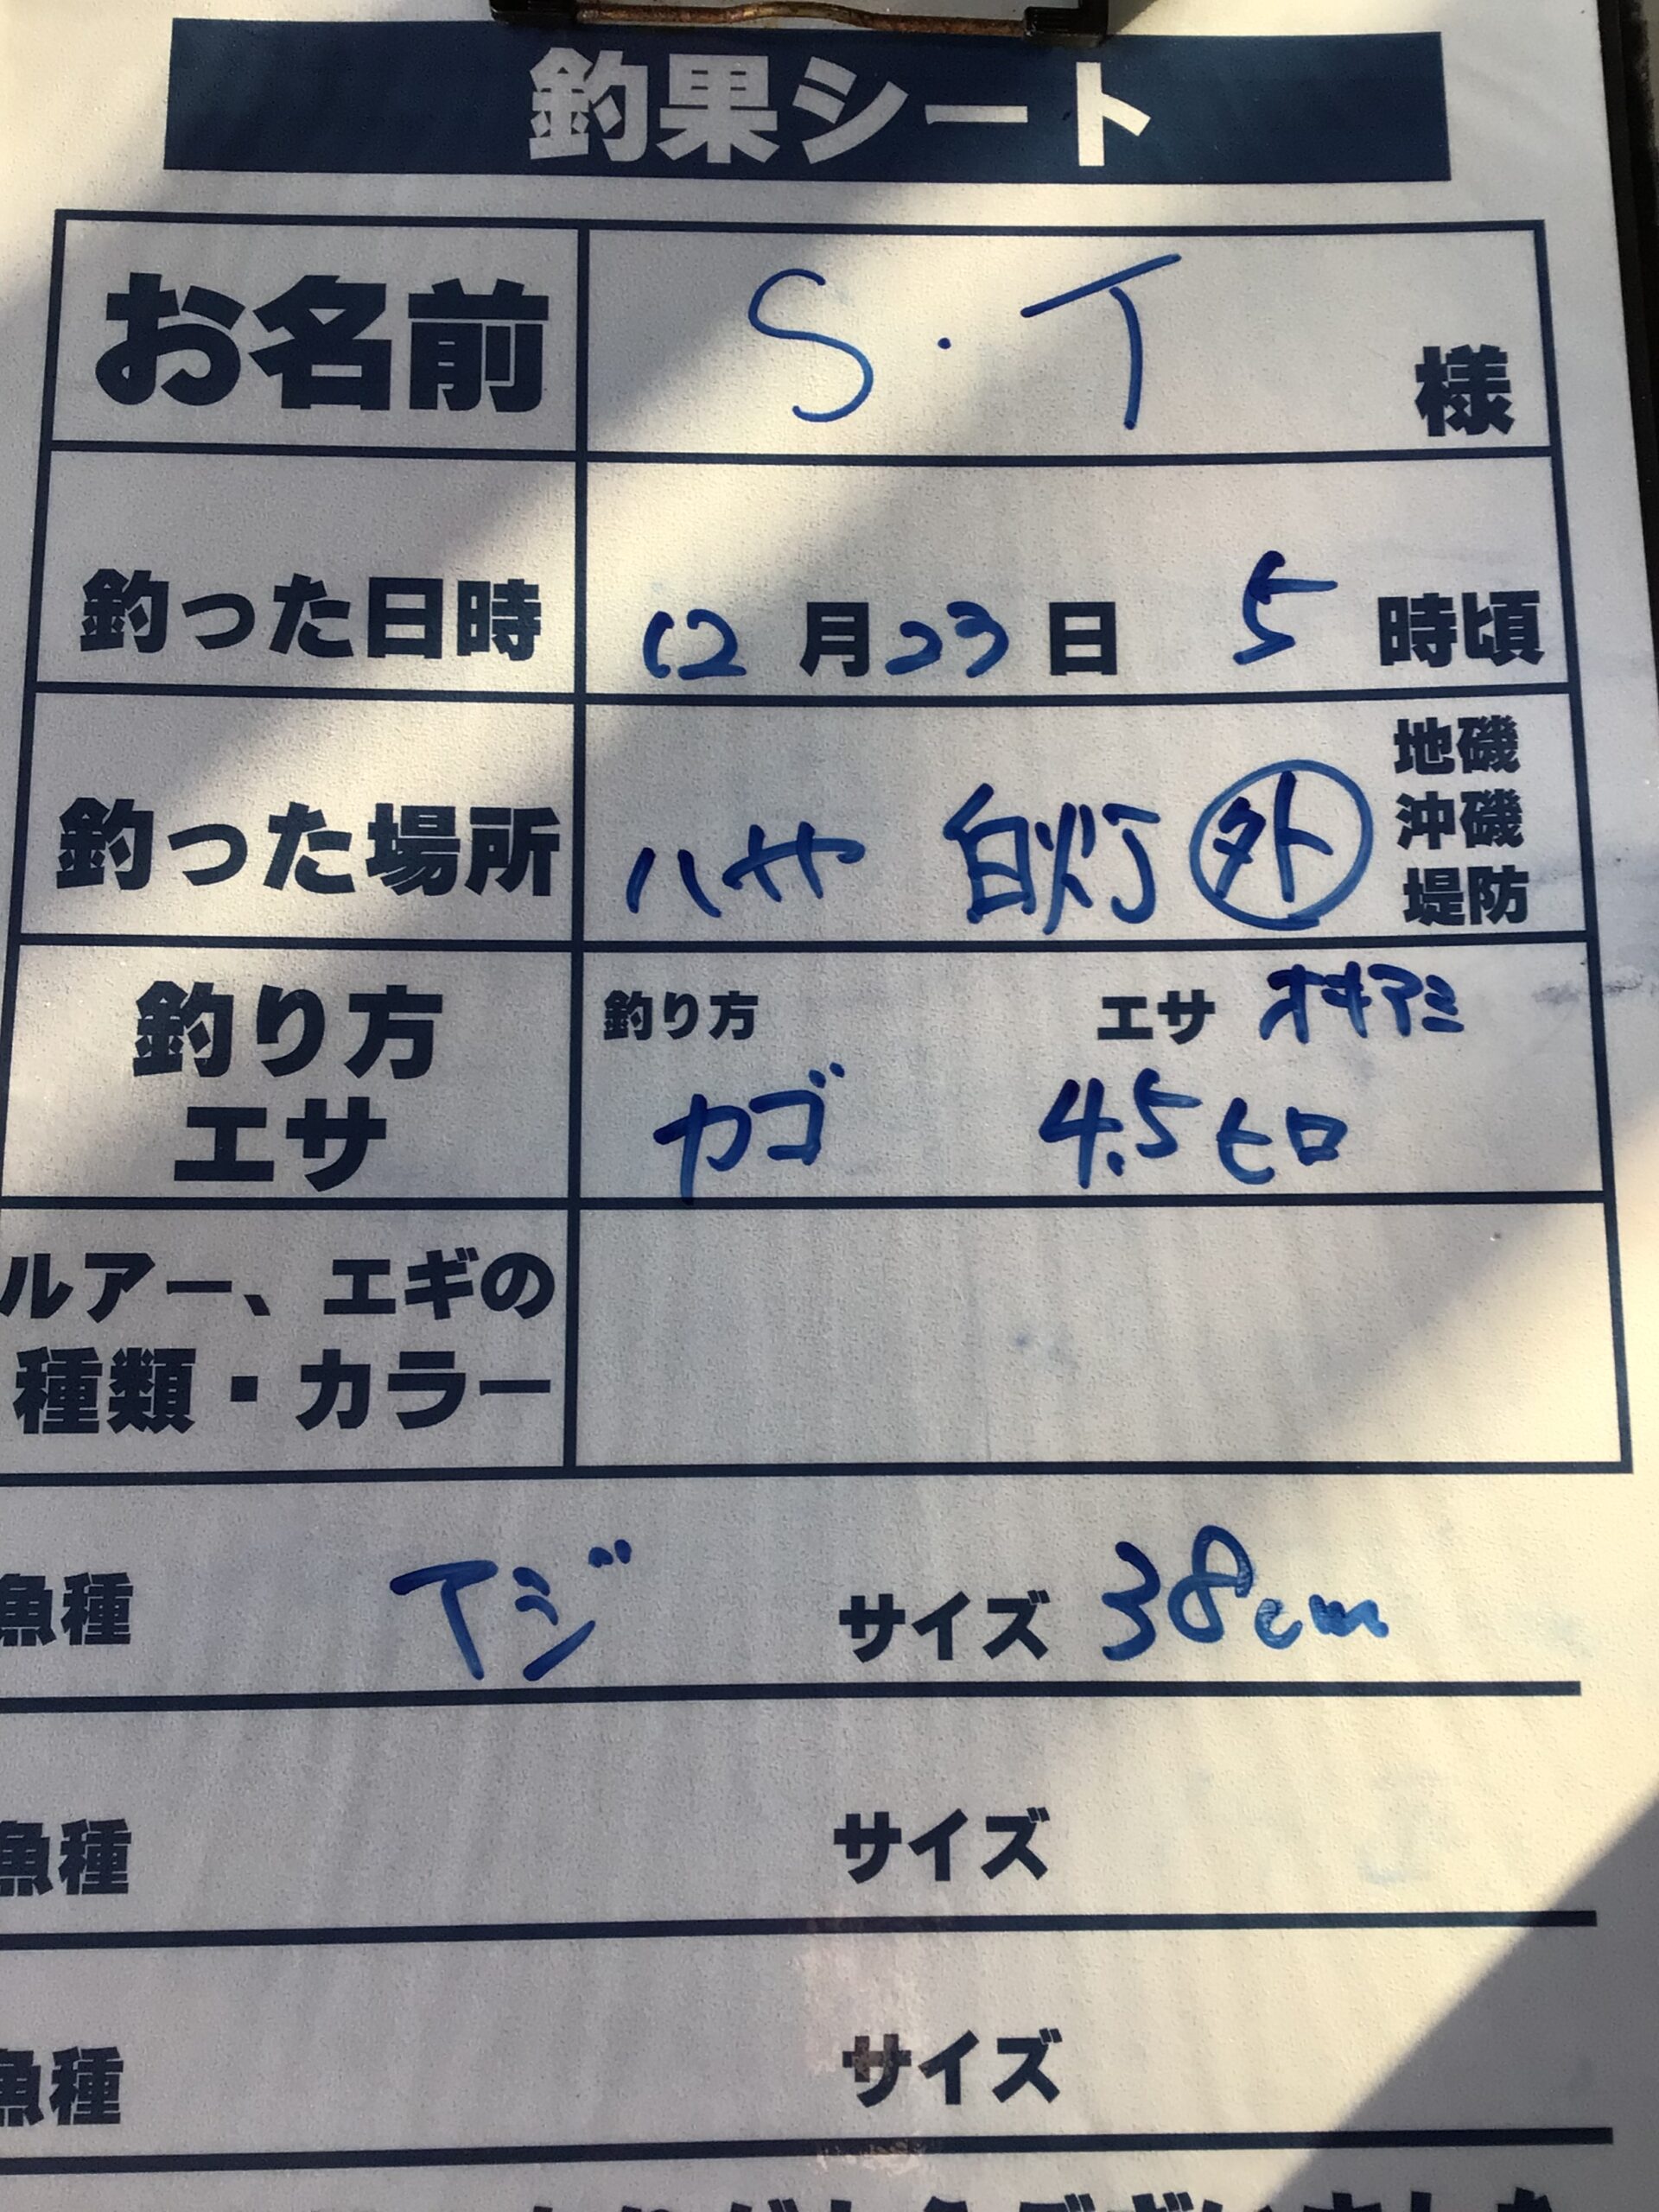 釣果シート
お名前 S・T 様
釣った日時 12月23日 5時頃
地磯
沖磯
堤防
釣った場所 ハヤサ 白灯 外
釣り方 エサ オキアミ
釣り方
エサ
カゴ 4.5ヒロ
ルアー、エギの
種類・カラー
魚種 アジ サイズ 38cm
魚種 サイズ
魚種 サイズ